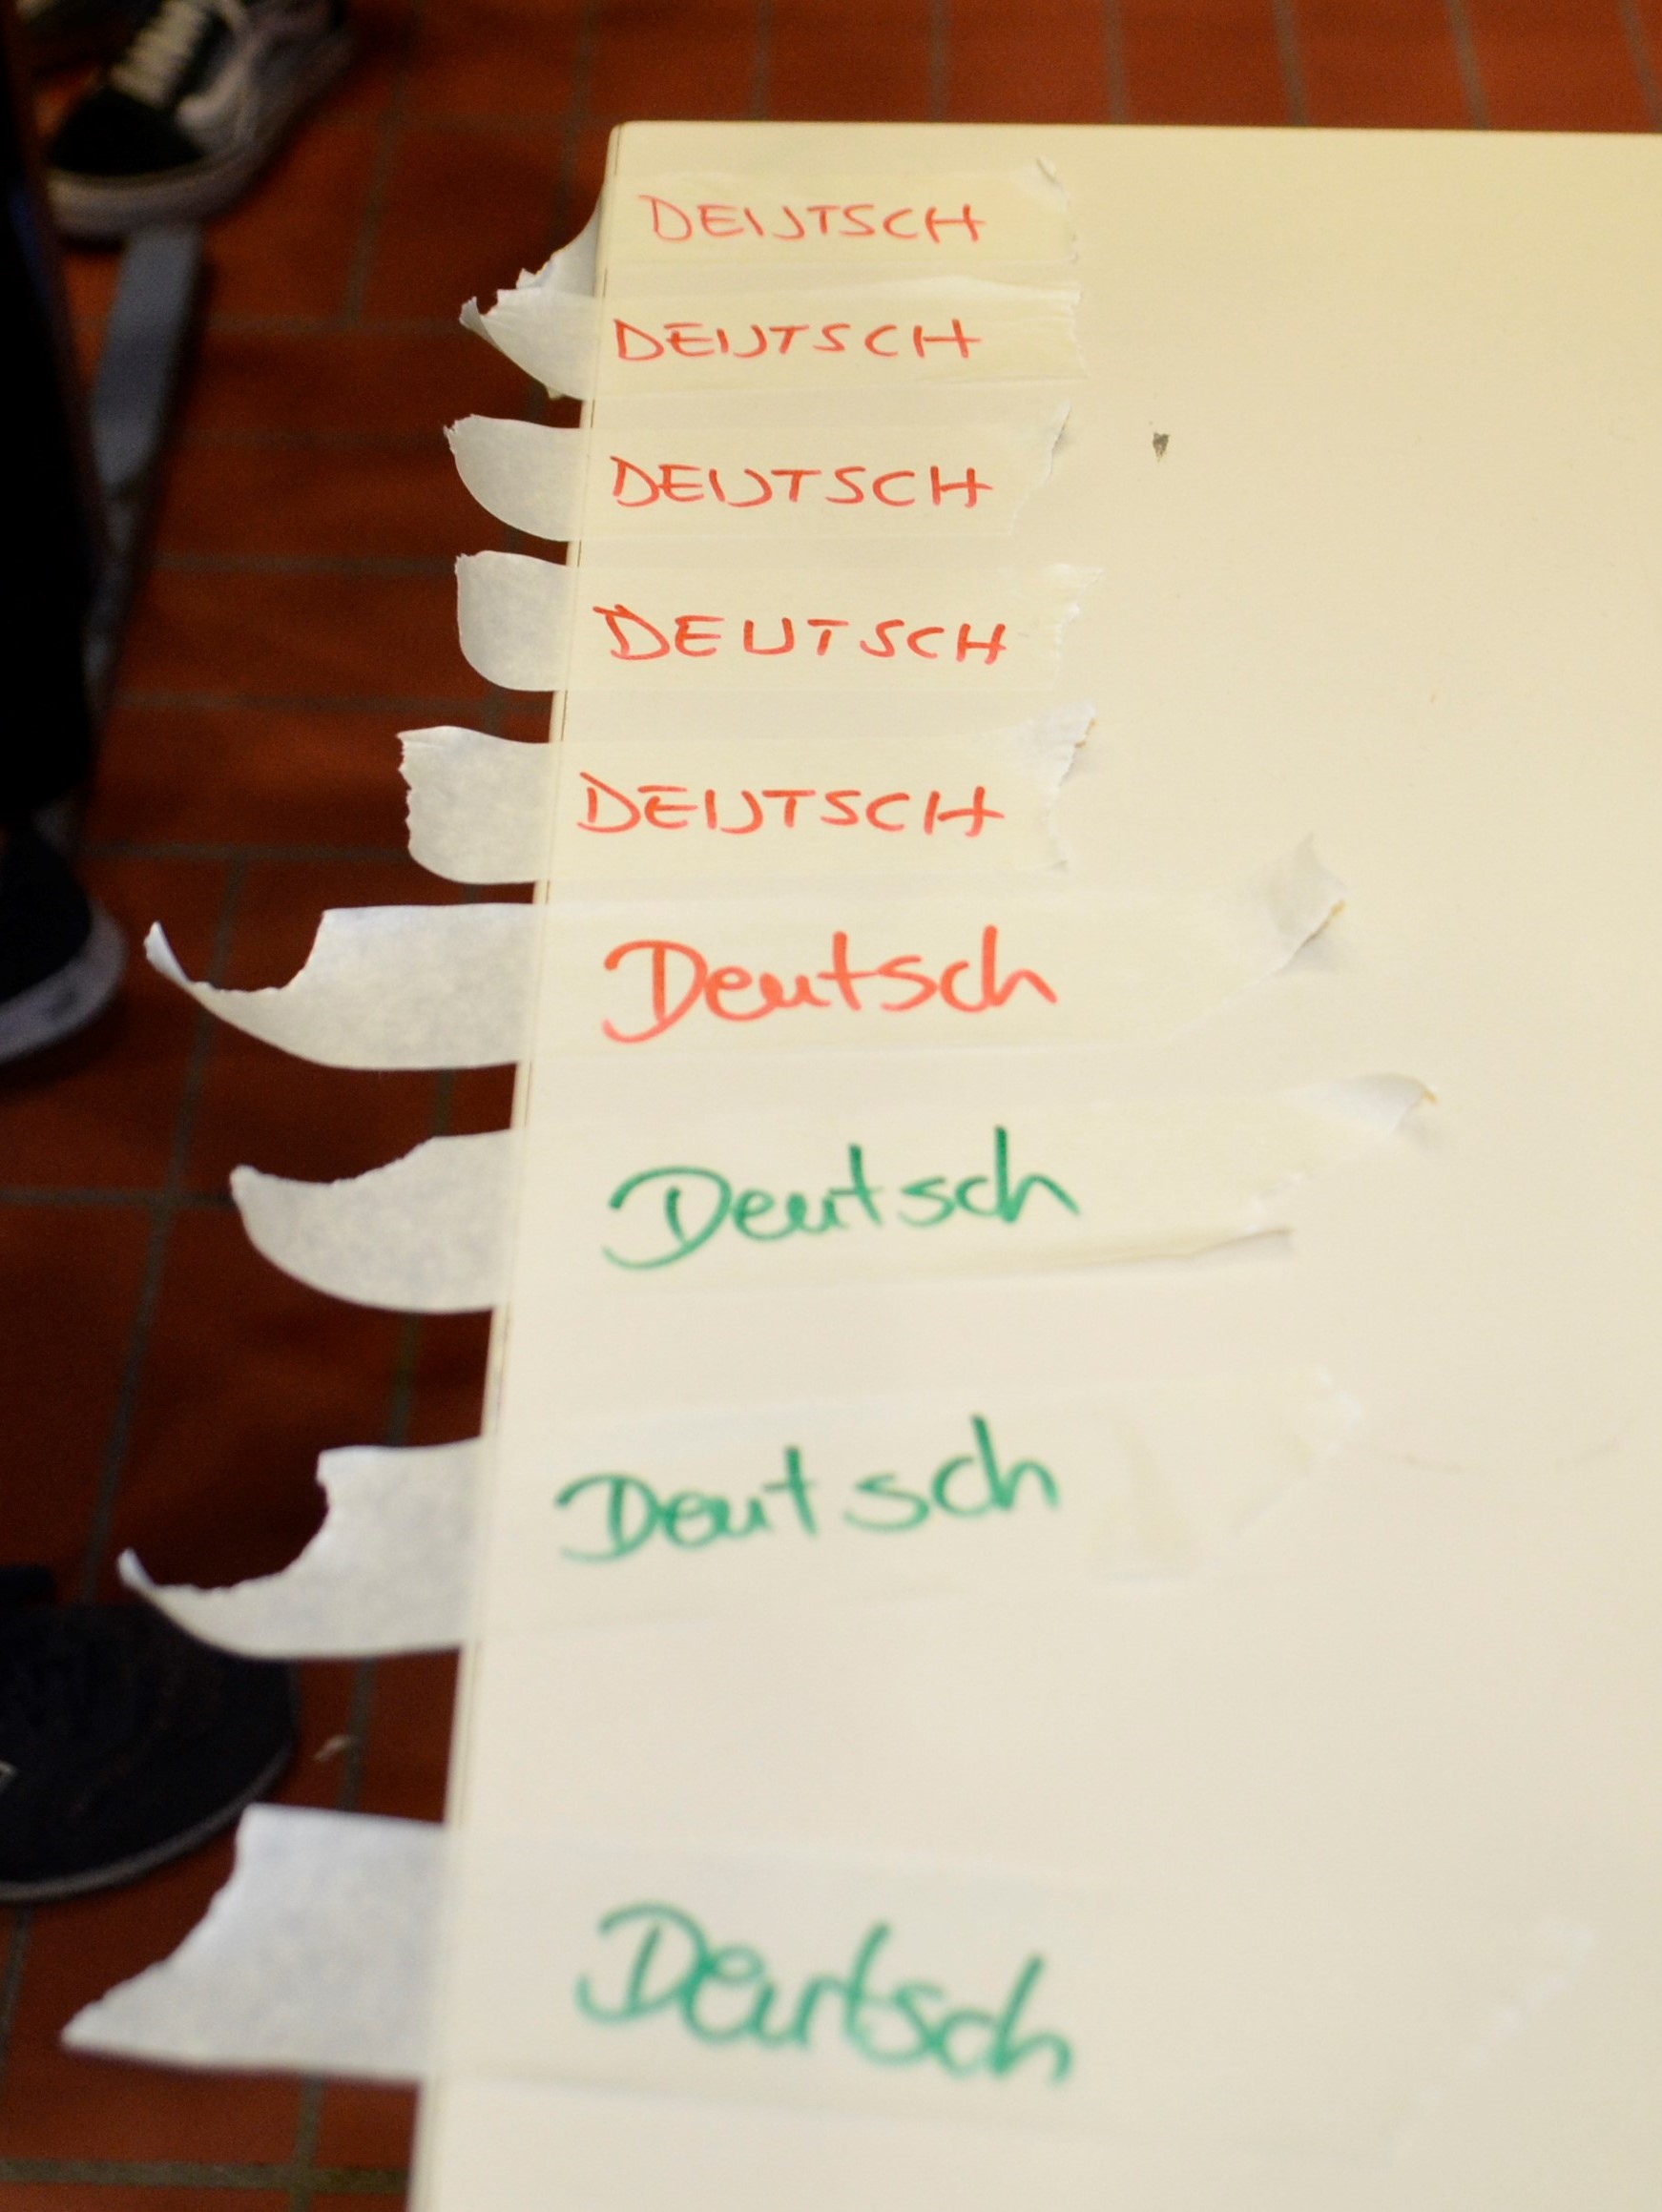 DEUTSCH
DEUTSCH
DEUTSCH
DEUTSCH
DEUTSCH
Deutsch
Deutsch
Deutsch
Deutsch